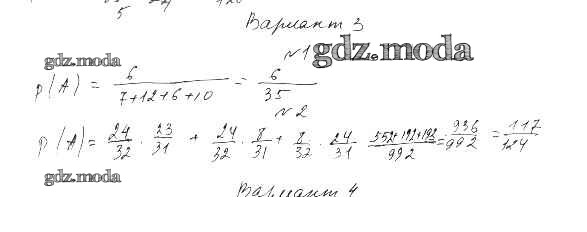 5 120
Вариант 3
gdz.moda
№1 gdz.moda
p(A) = 6/(7+12+6+10) = 6/35
№2
p(A) = 24/32 · 23/31 + 24/32 · 8/31 + 8/32 · 24/31 (552+192+192)/992 = 936/992 = 117/124
gdz.moda
Вариант 4